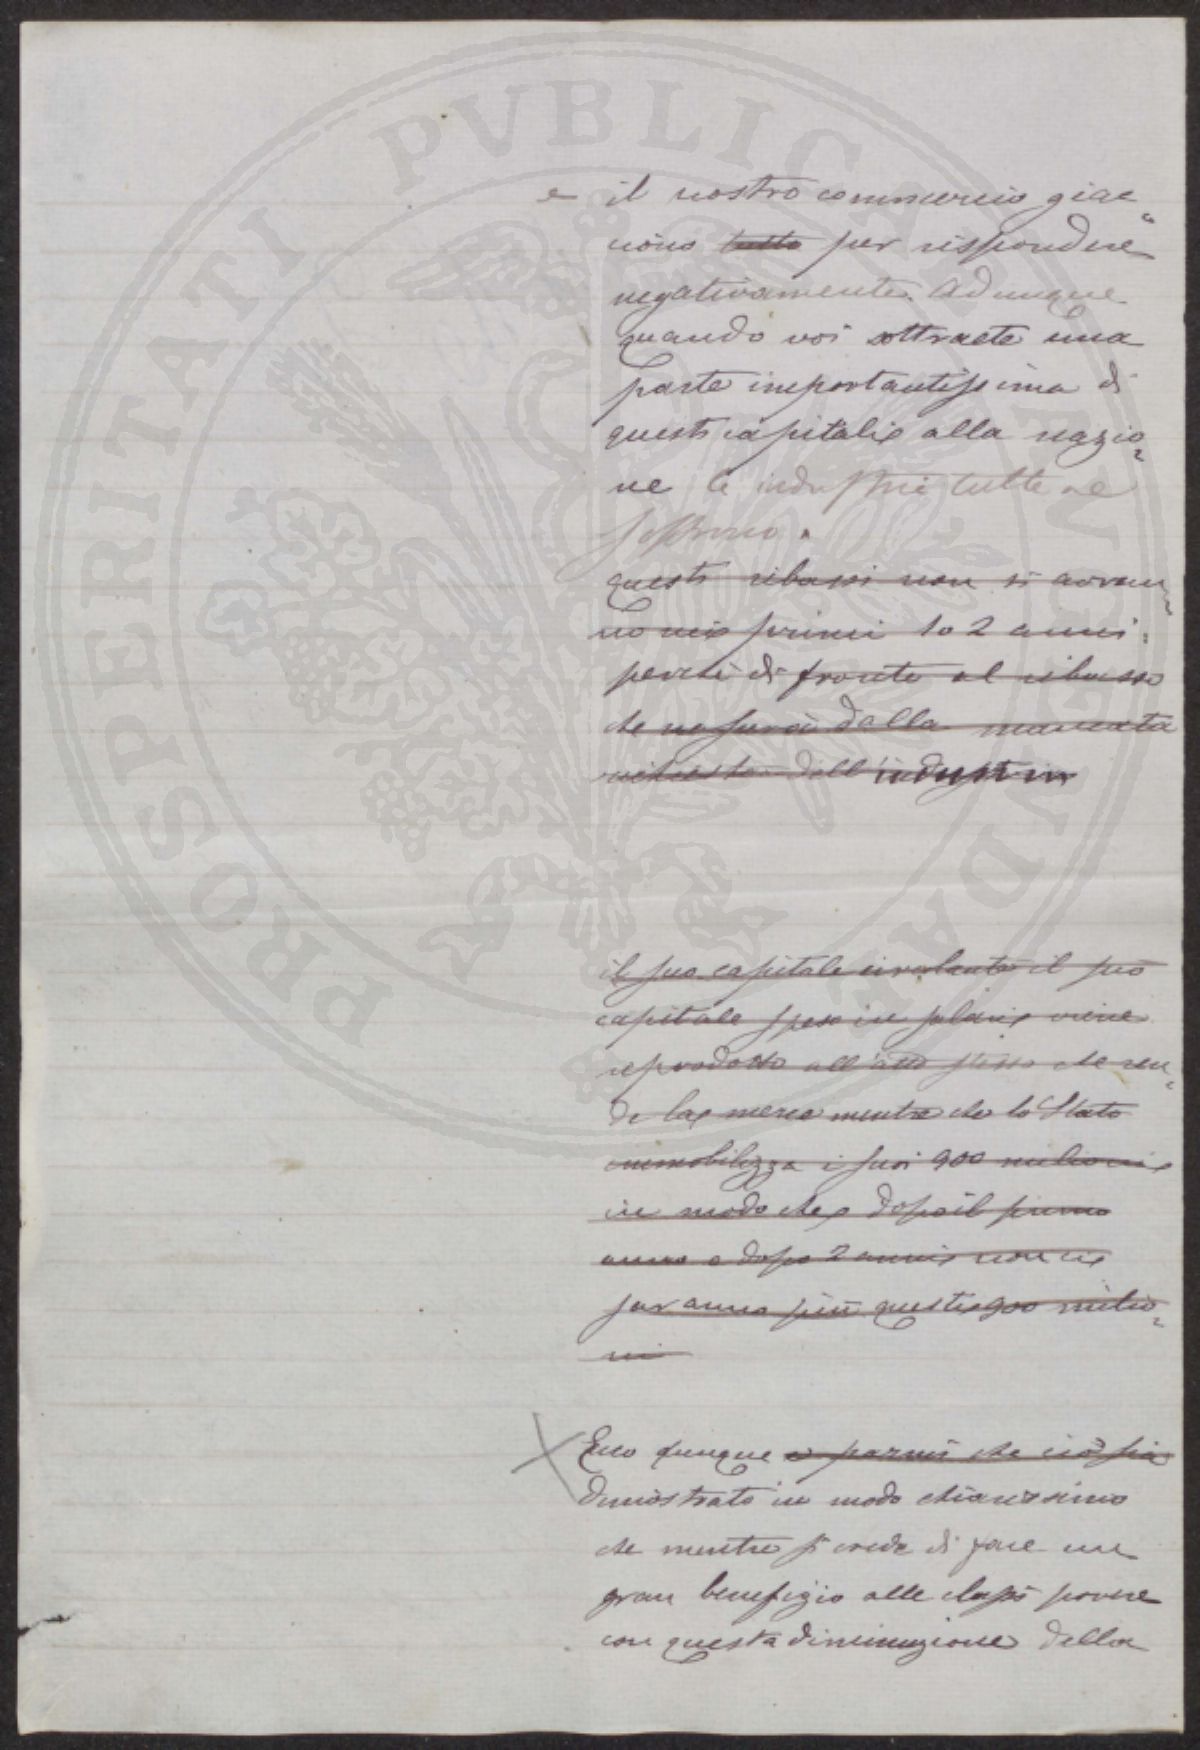 e il nostro commercio giac
ciono tutto per rispondere
negativamente. Adunque
quando voi sottraete una
parte importantissima di
questi capitali alla nazio
ne le industrie tutte ne
soffrono.
questi ribassi non si avran
no nei primi 1 o 2 anni
perchè di fronte al ribasso
che ne verrà dalla mancata
richiesta dell'industria
il suo capitale circolante il suo
capitale speso in salari viene
riprodotto all'atto stesso che ven
de la merce mentre che lo Stato
immobilizza i suoi 900 milioni
in modo che dopo il primo
anno o dopo 2 anni non ci
saranno più questi 900 milio
ni
Ecco dunque e parmi che ciò sia
dimostrato in modo chiarissimo
che mentre si crede di fare un
gran benefizio alle classi povere
con questa diminuzione della
PROSPERITATI PVBLICAE AVGENDAE